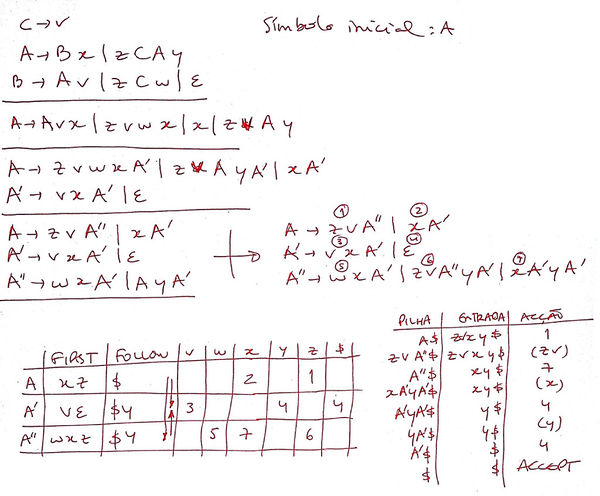 C → v
Símbolo inicial: A
A → B x | z C A y
B → A v | z C w | ε
A → A v x | z v w x | x | z v A y
A → z v w x A' | z v A y A' | x A'
A' → v x A' | ε
A → z v A'' | x A'
A' → v x A' | ε
A'' → w x A' | A y A'
① ②
A → z v A'' | x A'
③ ④
A' → v x A' | ε
⑤ ⑥ ⑦
A'' → w x A' | z v A'' y A' | x A' y A'
FIRST FOLLOW v w x y z $
A x z $ 2 1
A' v ε $ y 3 4 4
A'' w x z $ y 5 7 6
PILHA ENTRADA ACÇÃO
A$ zvxy$ 1
z v A''$ z v x y $ (z v)
A''$ x y $ 7
x A' y A'$ x y $ (x)
A' y A'$ y $ 4
y A'$ y $ (y)
A'$ $ 4
$ $ ACCEPT